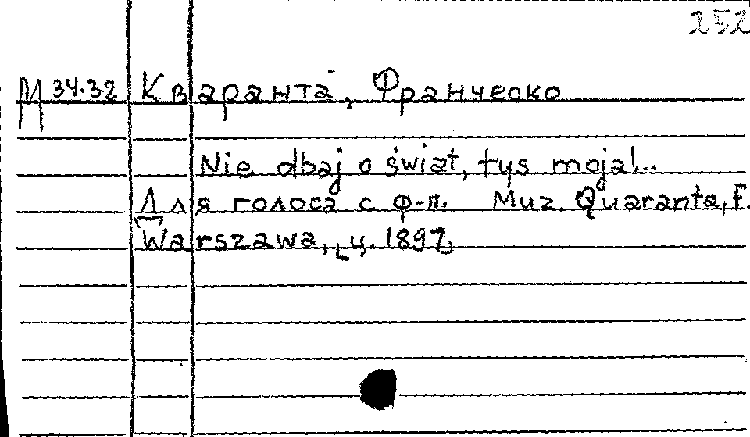 252
М 34.32 Кваранта, Франческо
Nie dbaj o świat, tyś moja!..
Для голоса с ф-п. Muz. Quaranta, F.
Warszawa, ц. 1897.